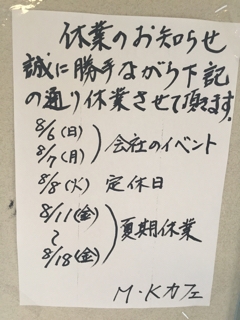 休業のお知らせ
誠に勝手ながら下記
の通り休業させて頂きます.
8/6(日)
8/7(月)
会社のイベント
8/8(火) 定休日
8/11(金)
〜
8/18(金)
夏期休業
M・Kカフェ